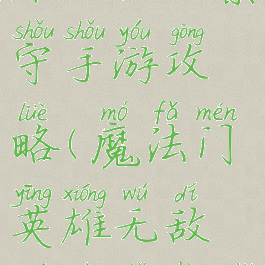 shǒu shǒu yóu gōng
守手游攻
lüè mó fǎ mén
略(魔法门
yīng xióng wú dí
英雄无敌